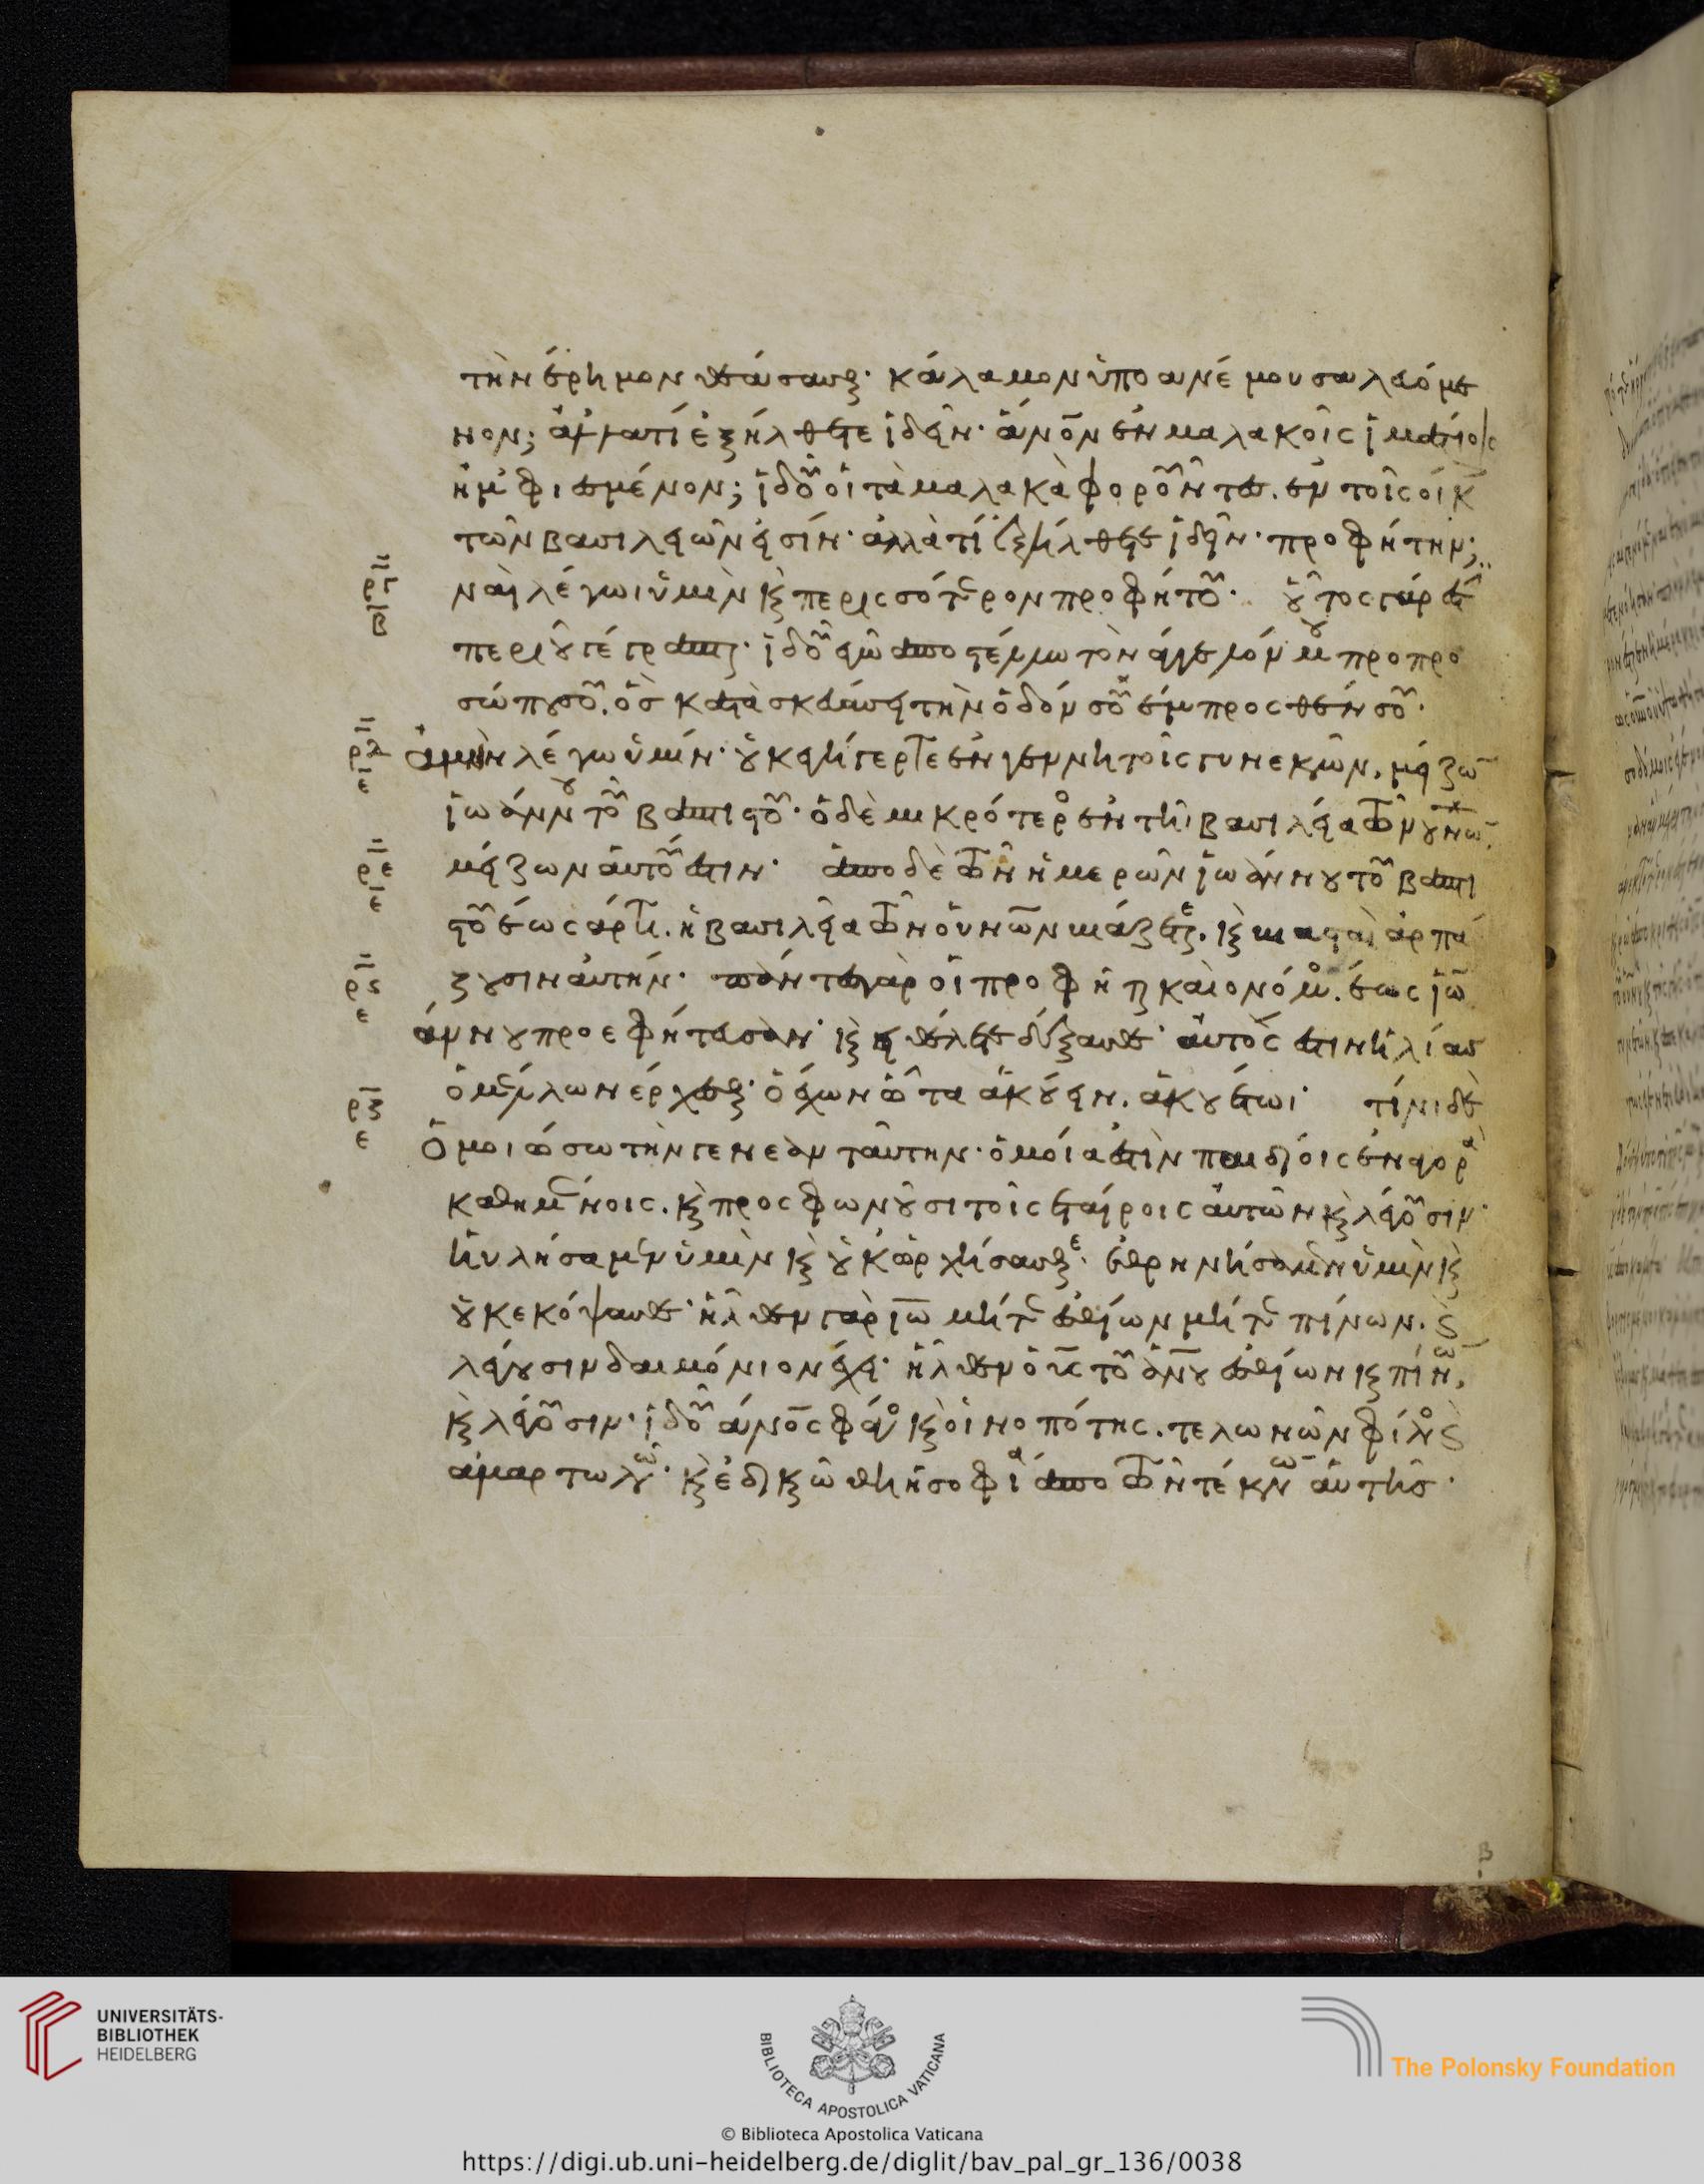 τὴν ἔρημον θεάσασθαι· κάλαμον ὑπὸ ἀνέμου σαλευόμε
νον; ἀλλὰ τί ἐξήλθετε ἰδεῖν· ἄνον ἐν μαλακοῖς ἱματίοις
ἠμφιεσμένον; ἰδοῦ οἱ τὰ μαλακὰ φοροῦντες. ἐν τοῖς οἴκ
τῶν βασιλείων εἰσίν· ἀλλὰ τί ἐξήλθετε ἰδεῖν· προφήτην;
ναὶ λέγωι ὑμῖν κ περισσότερον προφήτου· οὗτος γάρ ἐστι
περὶ οὗ γέγραπται· ἰδοῦ ἐγὼ ἀποστέλλω τὸν ἄγγελόν μου προ προ
σώπου σου. ὃς κατασκευάσει τὴν ὁδόν σου ἔμπροσθέν σου·
ἀμὴν λέγω ὑμῖν· οὐκ ἐγήγερται ἐν γεννητοῖς γυνεκῶν. μείζω
ἰωάννου τοῦ βαπτιστοῦ· ὁ δὲ μικρότερος ἐν τῆι βασιλεία τῶν οὐνων
μείζων αὐτοῦ ἐστιν· ἀπὸ δὲ τῶν ἡμερῶν ἰωάννου τοῦ βαπτι
στοῦ ἕως ἄρτι. ἡ βασιλεία τῶν οὐνων βιάζεται. κ βιασταὶ ἁρπά
ζουσιν αὐτήν· πάντες γὰρ οἱ προφῆται καὶ ὁ νόμος. ἕως ἰω
άννου προεφήτευσαν· κ εἰ θέλετε δέξασθε· αὐτός ἐστιν ἡλίας
ὁ μέλλων ἔρχεσθαι· ὁ ἔχων ὦτα ἀκούειν. ἀκουέτωι· τίνι δὲ
Ὁμοιώσω τὴν γενεὰν ταύτην· ὁμοία ἐστὶν παιδίοις ἐν ἀγορᾶ
καθημένοις. κ προσφωνοῦσι τοῖς ἑταίροις αὐτῶν κ λέγουσιν·
ηὐλήσαμεν ὑμῖν κ οὐκ ὠρχήσασθε· ἐθρηνήσαμεν ὑμῖν κ
οὐκ ἐκόψασθε· ἦλθεν γὰρ ἰω μήτε ἐσθίων μήτε πίνων. κ
λέγουσιν δαιμόνιον ἔχει· ἦλθεν ὁ υς τοῦ ἀνου ἐσθίων κ πίνων,
κ λέγουσιν· ἰδοῦ ἄνος φάγος κ οἰνοπότης. τελωνῶν φίλος κ
ἁμαρτωλῶν· κ ἐδικαιώθη ἡ σοφία ἀπὸ τῶν τέκνων αὐτῆς·
ρε
ε
ρς
ε
ρζ
ε
β
UNIVERSITÄTS-
BIBLIOTHEK
HEIDELBERG
BIBLIOTECA APOSTOLICA VATICANA
The Polonsky Foundation
© Biblioteca Apostolica Vaticana
https://digi.ub.uni-heidelberg.de/diglit/bav_pal_gr_136/0038